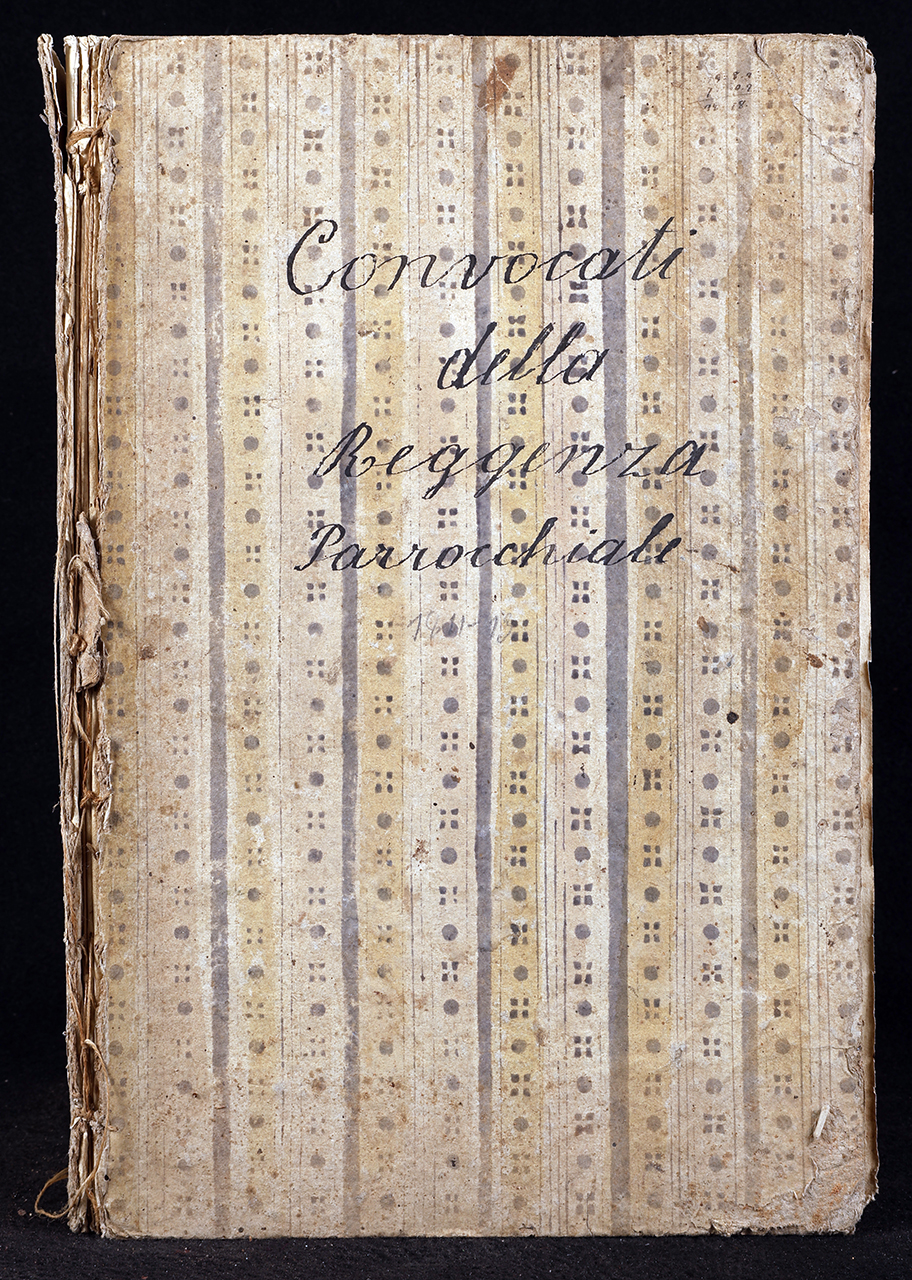 Convocati
della
Reggenza
Parrocchiale